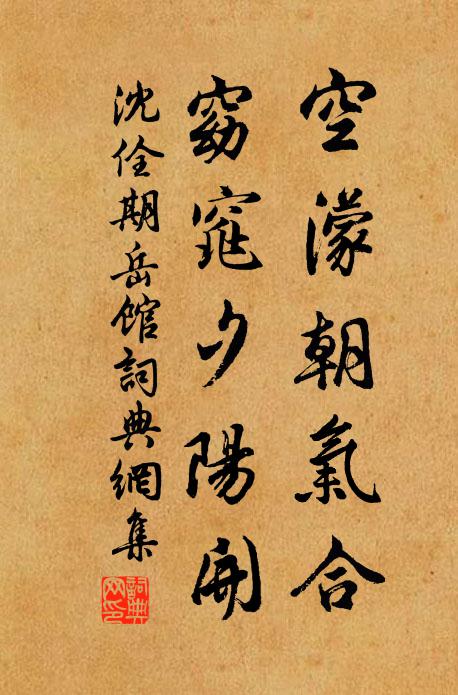 空濛朝氣合
窈窕夕陽開
沈佺期岳館詞典網集
詞典網印